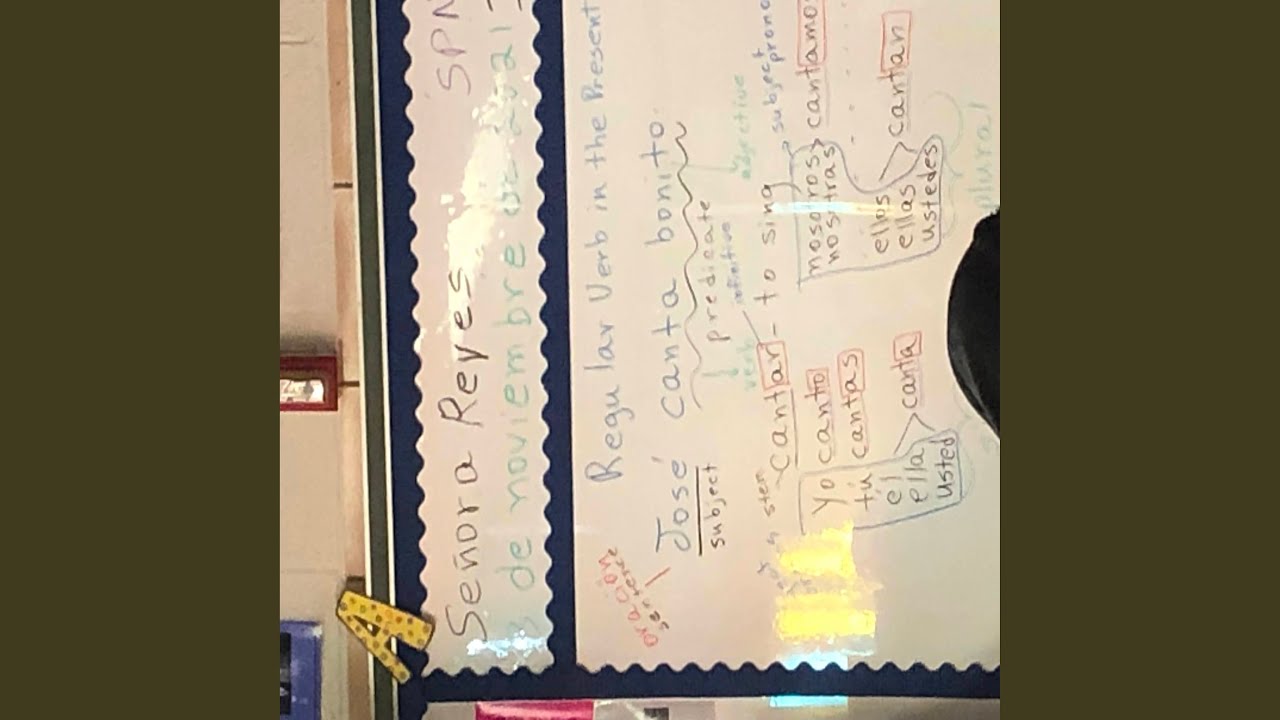 Señora Reyes SPN
de noviembre
Regular Verb in the Present
oración
sentence
José canta bonito.
subject predicate
verb infinitive adjective
stem
cantar - to sing
subject
prono
yo canto
tú cantas
él
ella canta
usted
nosotros cantamos
nosotras
ellos
ellas cantan
ustedes
plural
A